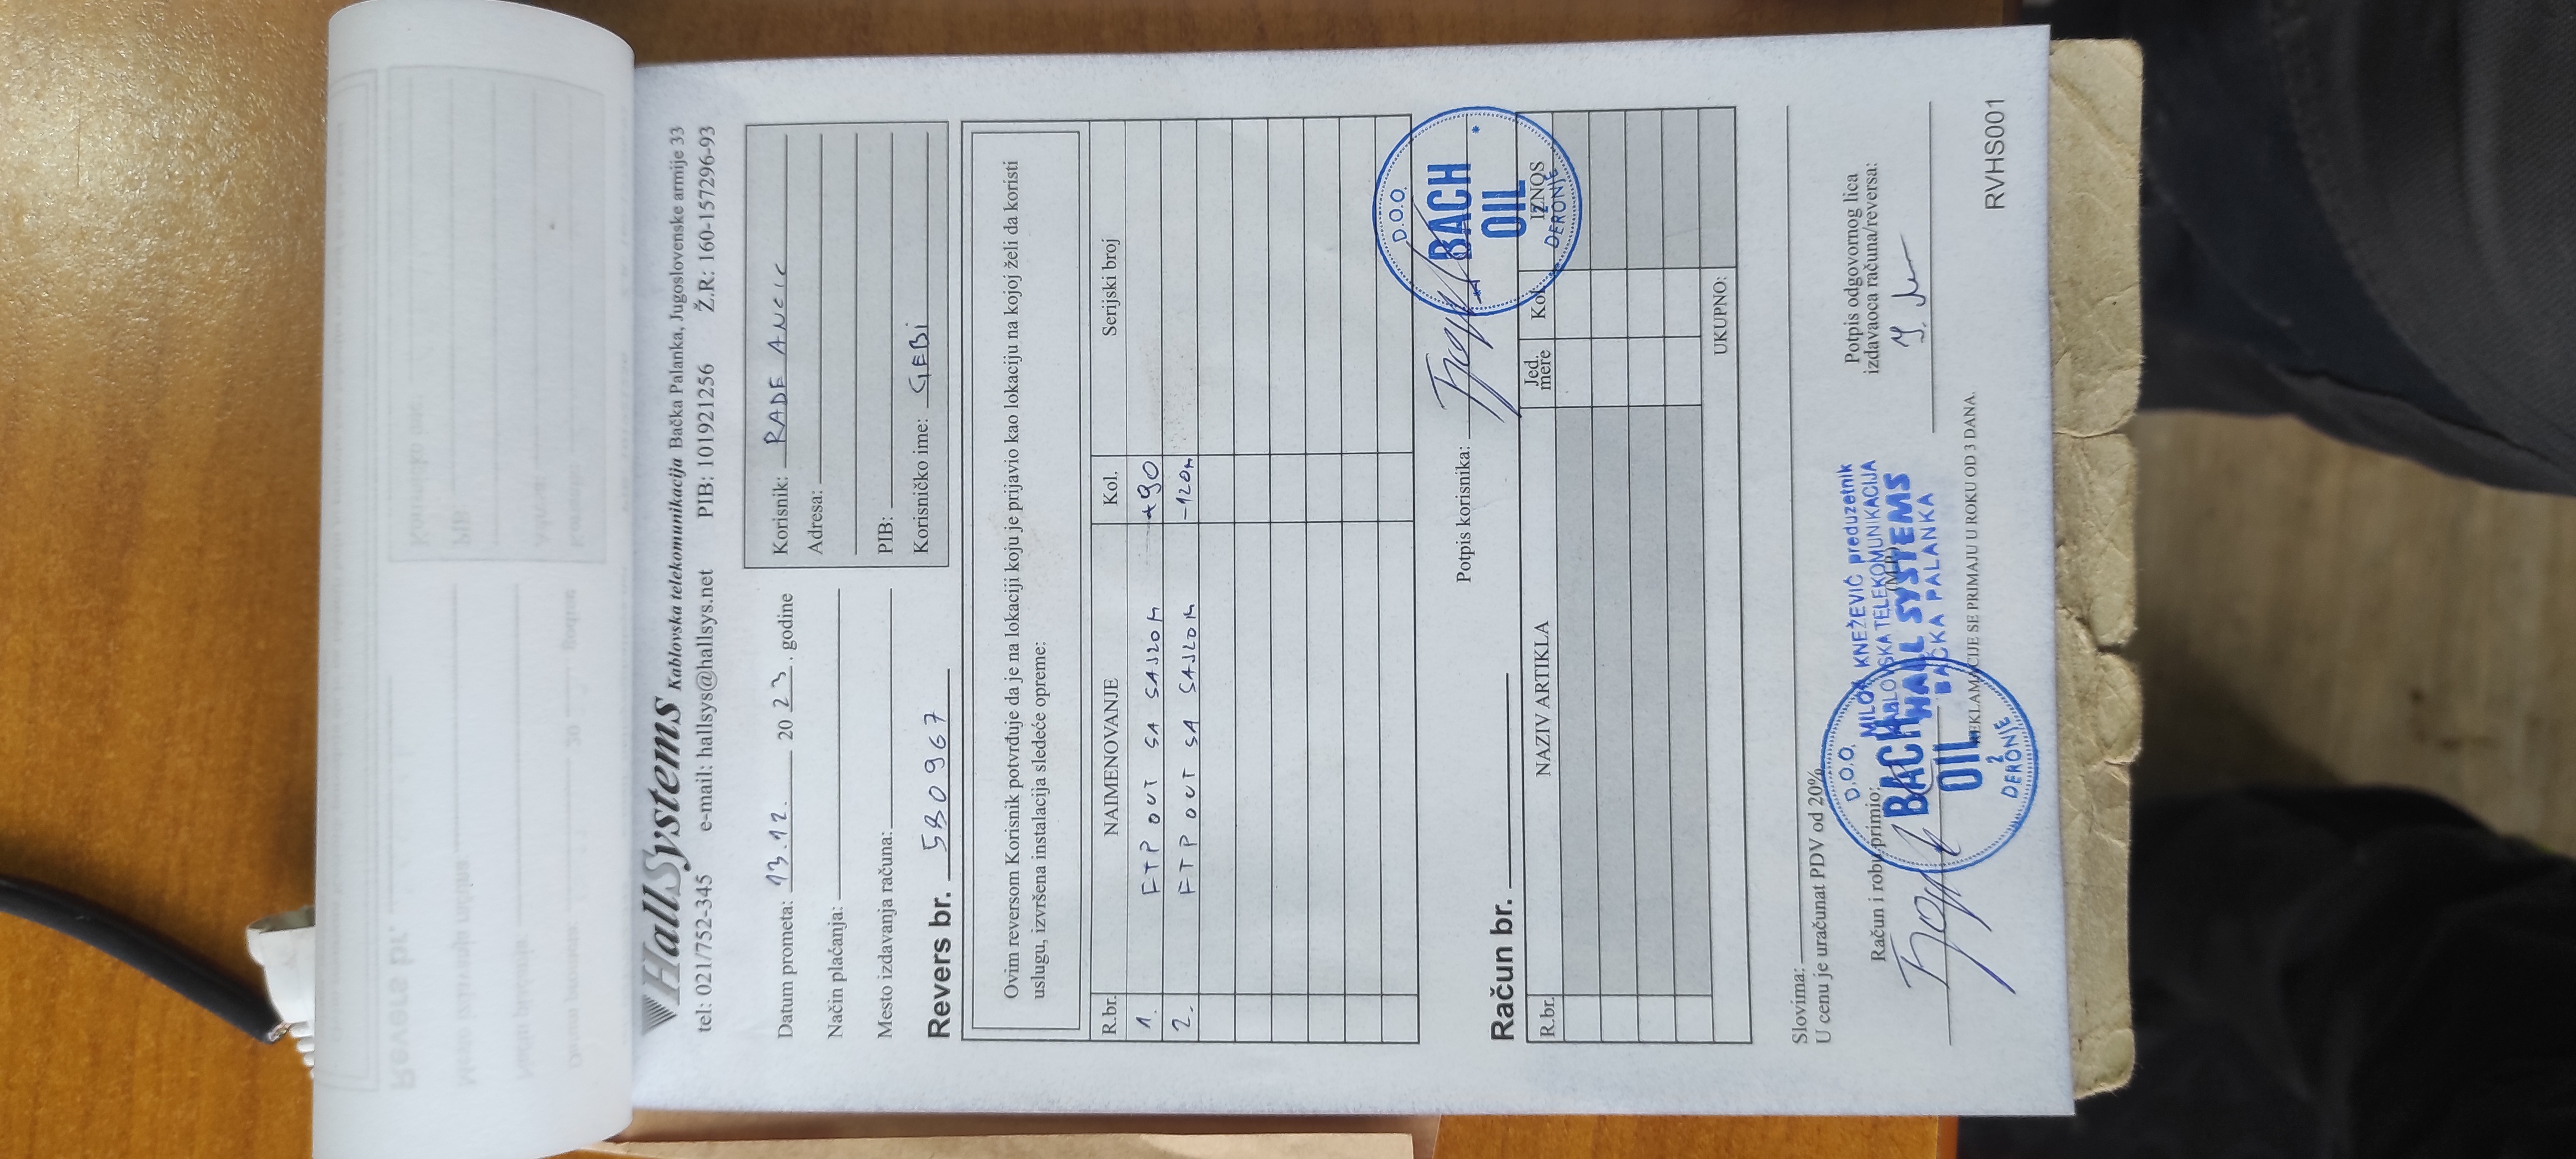 HallSystems Kablovska telekomunikacija Bačka Palanka, Jugoslovenske armije 33
tel: 021/752-345 e-mail: hallsys@hallsys.net PIB: 101921256 Ž.R.: 160-157296-93
Datum prometa: 13.12. 20 23 . godine
Način plaćanja:
Mesto izdavanja računa:
Korisnik: RADE
Adresa:
PIB:
Korisničko ime: GEBI
Revers br. 580967
Ovim reversom Korisnik potvrđuje da je na lokaciji koju je prijavio kao lokaciju na kojoj želi da koristi
uslugu, izvršena instalacija sledeće opreme:
R.br. NAIMENOVANJE Kol. Serijski broj
1. FTP OUT SA SAJLOM +90
2. FTP OUT SA SAJLOM -120m
Potpis korisnika:
D.O.O.
BACH
OIL
2
DERONJE
Račun br.
R.br. NAZIV ARTIKLA Jed. mere Kol. IZNOS
UKUPNO:
Slovima:
U cenu je uračunat PDV od 20%
Račun i robu primio:
Potpis odgovornog lica
izdavaoca računa/reversa:
D.O.O.
BACH
OIL
2
DERONJE
MILOŠ KNEŽEVIĆ preduzetnik
KABLOVSKA TELEKOMUNIKACIJA
HALL SYSTEMS
BAČKA PALANKA
REKLAMACIJE SE PRIMAJU U ROKU OD 3 DANA.
RVHS001